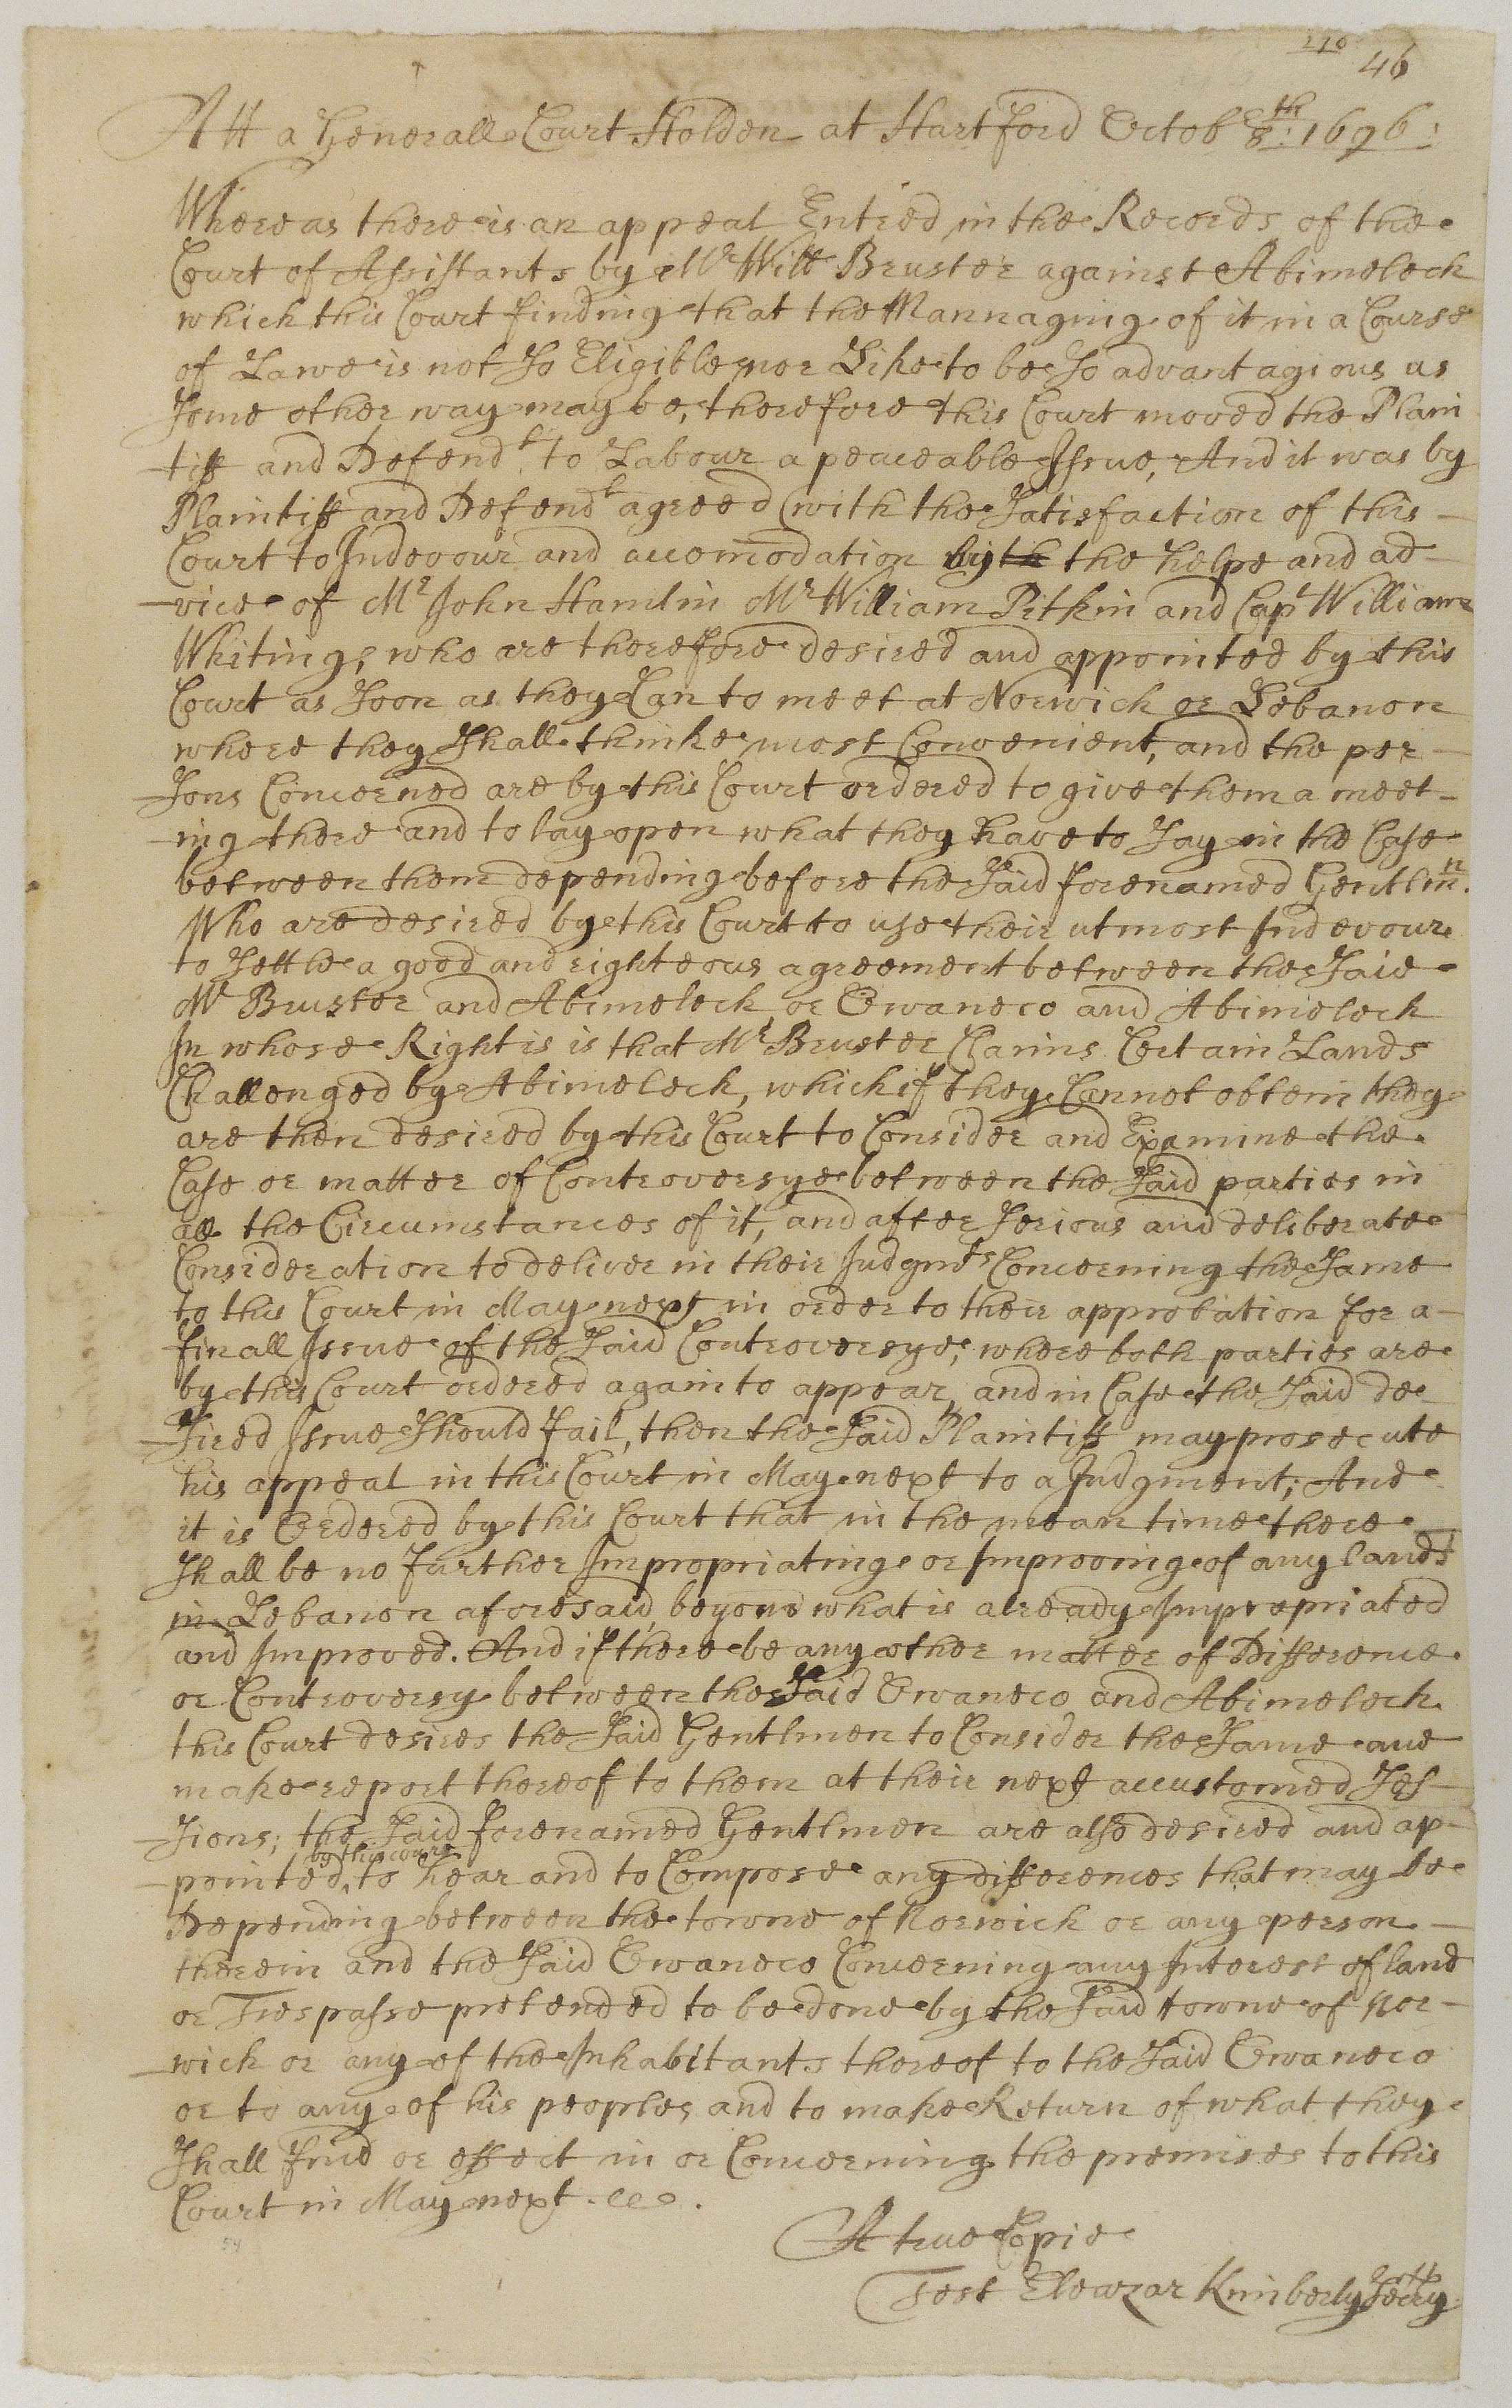 210
46
Att a Generall Court Holden at Hartford Octobr 8th: 1696:
Whereas there is an appeal Entred in the Records of the
Court of Assistants by Mr Willm Bruster against Abimeleck
which this Court finding that the Mannaging of it in a Course
of Lawe is not so Eligible nor Like to be so advantagious as
some other way may be, therefore this Court moved the Plain
-tiff and Defendt. to Labour a peaceable Issue, And it was by
Plaintiff and Defendt agreed with the satisfaction of this -
Court to Indevour and accomodation by the the helpe and ad -
- vice of Mr John Hamlin Mr William Pitkin and Capt William
Whiting, who are therefore desired and appointed by this
Court as soon as they Can to meet at Norwich or Lebanon
where they shall thinke most Convenient, and the per -
- sons Concerned are by this Court ordered to give them a meet -
- ing there and to lay open what they have to say in the Case
between them depending before the said forenamed Gentlmn.
Who are desired by this Court to use their utmost Indevour
to settle a good and righteous agreement between the said
Mr Bruster and Abimeleck or Owaneco and Abimeleck
In whose Right is is that Mr Bruster Claims Certain Lands
Challenged by Abimeleck, which if they Cannot obtein they
are then desired by this Court to Consider and Examine the
Case or matter of Controversye between the said parties in
all the Circumstances of it, and after serious and deliberate
Consideration to deliver in their Judgmts Concerning the same
to this Court in May next in order to their approbation for a -
finall Issue of the said Controversye, where both parties are
by this Court ordered again to appear, and in Case the said de -
- sired Issue should fail, then the said Plaintiff may prosecute
his appeal in this Court in May next to a Judgment; And
it is Ordered by this Court that in the mean time there
shall be no further Impropriating or Improoing of any lands
in Lebanon aforesaid beyond what is already Impropriated
and Improved. And if there be any other matter of Difference
or Controversy between the said Owaneco and Abimeleck
this Court desires the said Gentlmen to Consider the same and
make report thereof to them at their next accustomed ses -
- sions; the said forenamed Gentlmen are also desired and ap -
by this Court
- pointed ^ to hear and to Compose any differences that may be
Depending between the towne of Norwich or any person -
therein and the said Owaneco Concerning any Interest of land
or Trespasse pretended to be done by the said towne of Nor -
- wich or any of the Inhabitants thereof to the said Owaneco
or to any of his peoples and to make Return of what they
shall find or effect in or Concerning the premises to this
Court in May next.
A true Copie
Test Eleazar Kimberly Secry